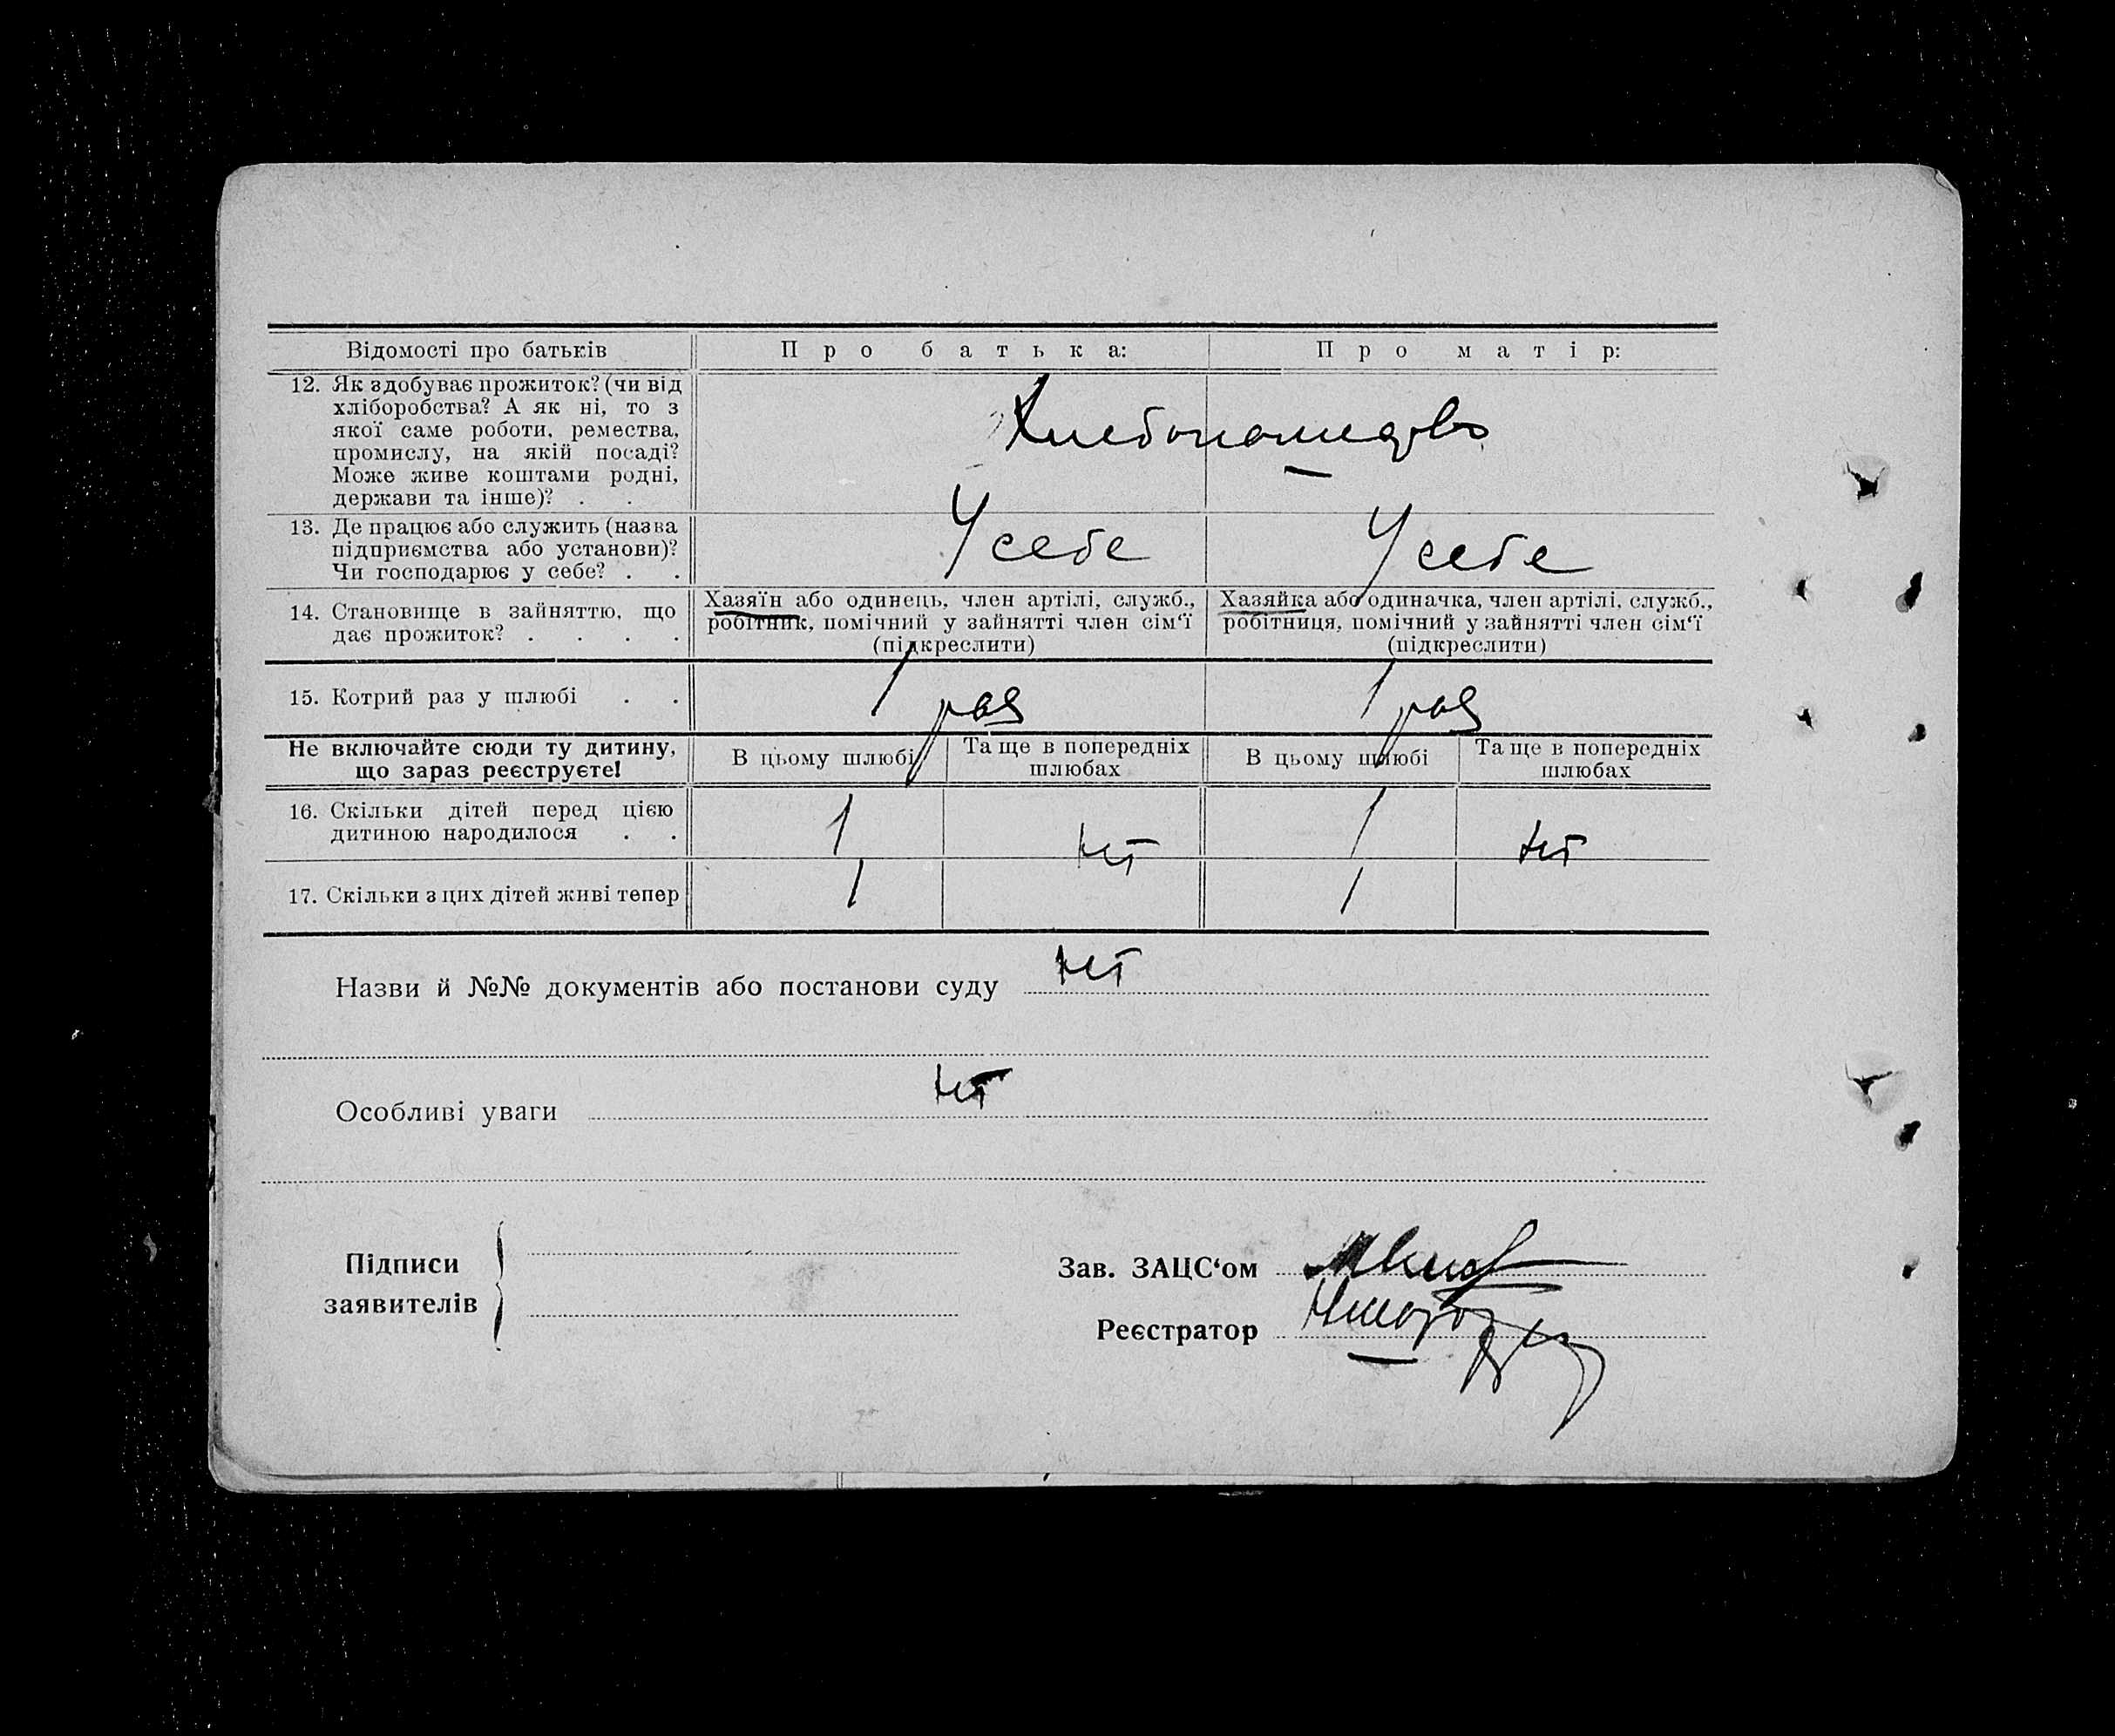 Відомості про батьків
Про батька:
Про матір:
12. Як здобуває прожиток? (чи від
хліборобства? А як ні, то з
якої саме роботи, ремества,
промислу, на якій посаді?
Може живе коштами родні,
держави та інше)? . .
Хлебопашество
13. Де працює або служить (назва
підприємства або установи)?
Чи господарює у себе? . .
У себе
У себе
14. Становище в зайняттю, що
дає прожиток? . . . .
Хазяїн або одинець, член артілі, служб.,
робітник, помічний у зайнятті член сім'ї
(підкреслити)
Хазяйка або одиначка, член артілі, служб.,
робітниця, помічний у зайнятті член сім'ї
(підкреслити)
15. Котрий раз у шлюбі . .
1 раз
1 раз
Не включайте сюди ту дитину,
що зараз реєструєте!
В цьому шлюбі
Та ще в попередніх
шлюбах
В цьому шлюбі
Та ще в попередніх
шлюбах
16. Скільки дітей перед цією
дитиною народилося . .
1
нет
1
нет
17. Скільки з цих дітей живі тепер
1
1
Назви й №№ документів або постанови суду нет
Особливі уваги нет
Підписи
заявителів
Зав. ЗАЦС'ом
Реєстратор